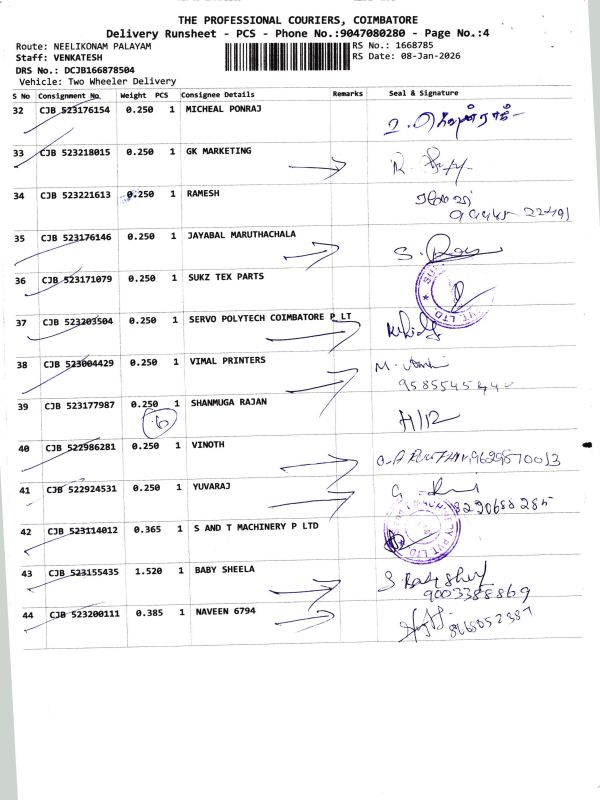 THE PROFESSIONAL COURIERS, COIMBATORE
Delivery Runsheet - PCS - Phone No.:9047080280 - Page No.:4
Route: NEELIKONAM PALAYAM RS No.: 1668785
Staff: VENKATESH RS Date: 08-Jan-2026
DRS No.: DCJB166878504
Vehicle: Two Wheeler Delivery
S No Consignment No. Weight PCS Consignee Details Remarks Seal & Signature
32 CJB 523176154 0.250 1 MICHEAL PONRAJ
33 CJB 523218015 0.250 1 GK MARKETING
34 CJB 523221613 0.250 1 RAMESH
35 CJB 523176146 0.250 1 JAYABAL MARUTHACHALA
36 CJB 523171079 0.250 1 SUKZ TEX PARTS
37 CJB 523203504 0.250 1 SERVO POLYTECH COIMBATORE P LT
38 CJB 523004429 0.250 1 VIMAL PRINTERS
39 CJB 523177987 0.250 1 SHANMUGA RAJAN H/12
40 CJB 522986281 0.250 1 VINOTH
41 CJB 522924531 0.250 1 YUVARAJ
42 CJB 523114012 0.365 1 S AND T MACHINERY P LTD
43 CJB 523155435 1.520 1 BABY SHEELA
9003388869
44 CJB 523200111 0.385 1 NAVEEN 6794